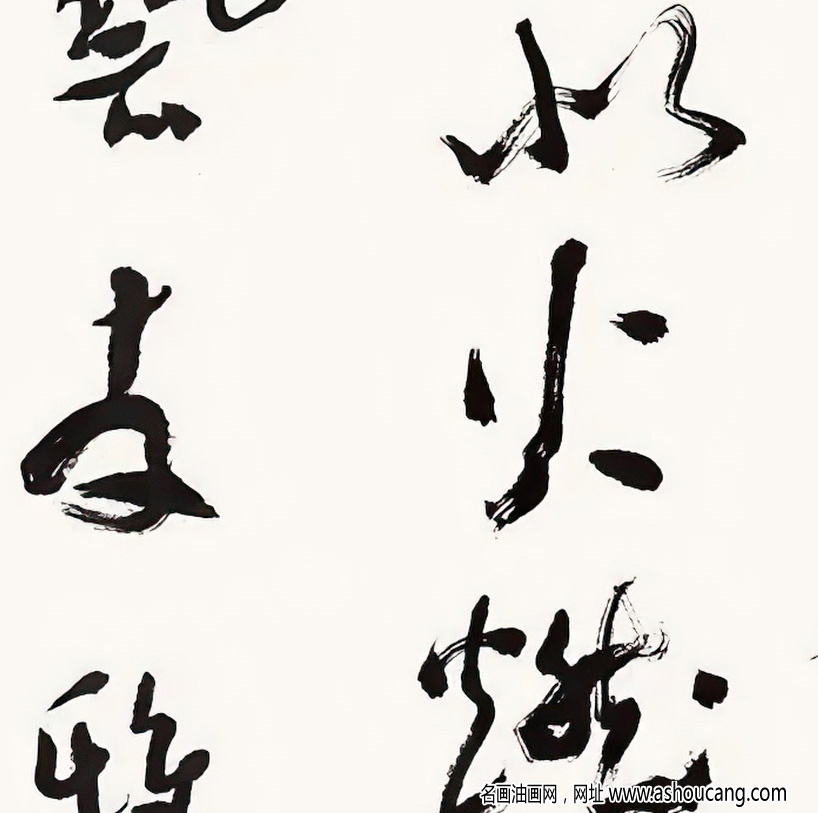 火燃
藝友雅
名画油画网，网址 www.ashoucang.com